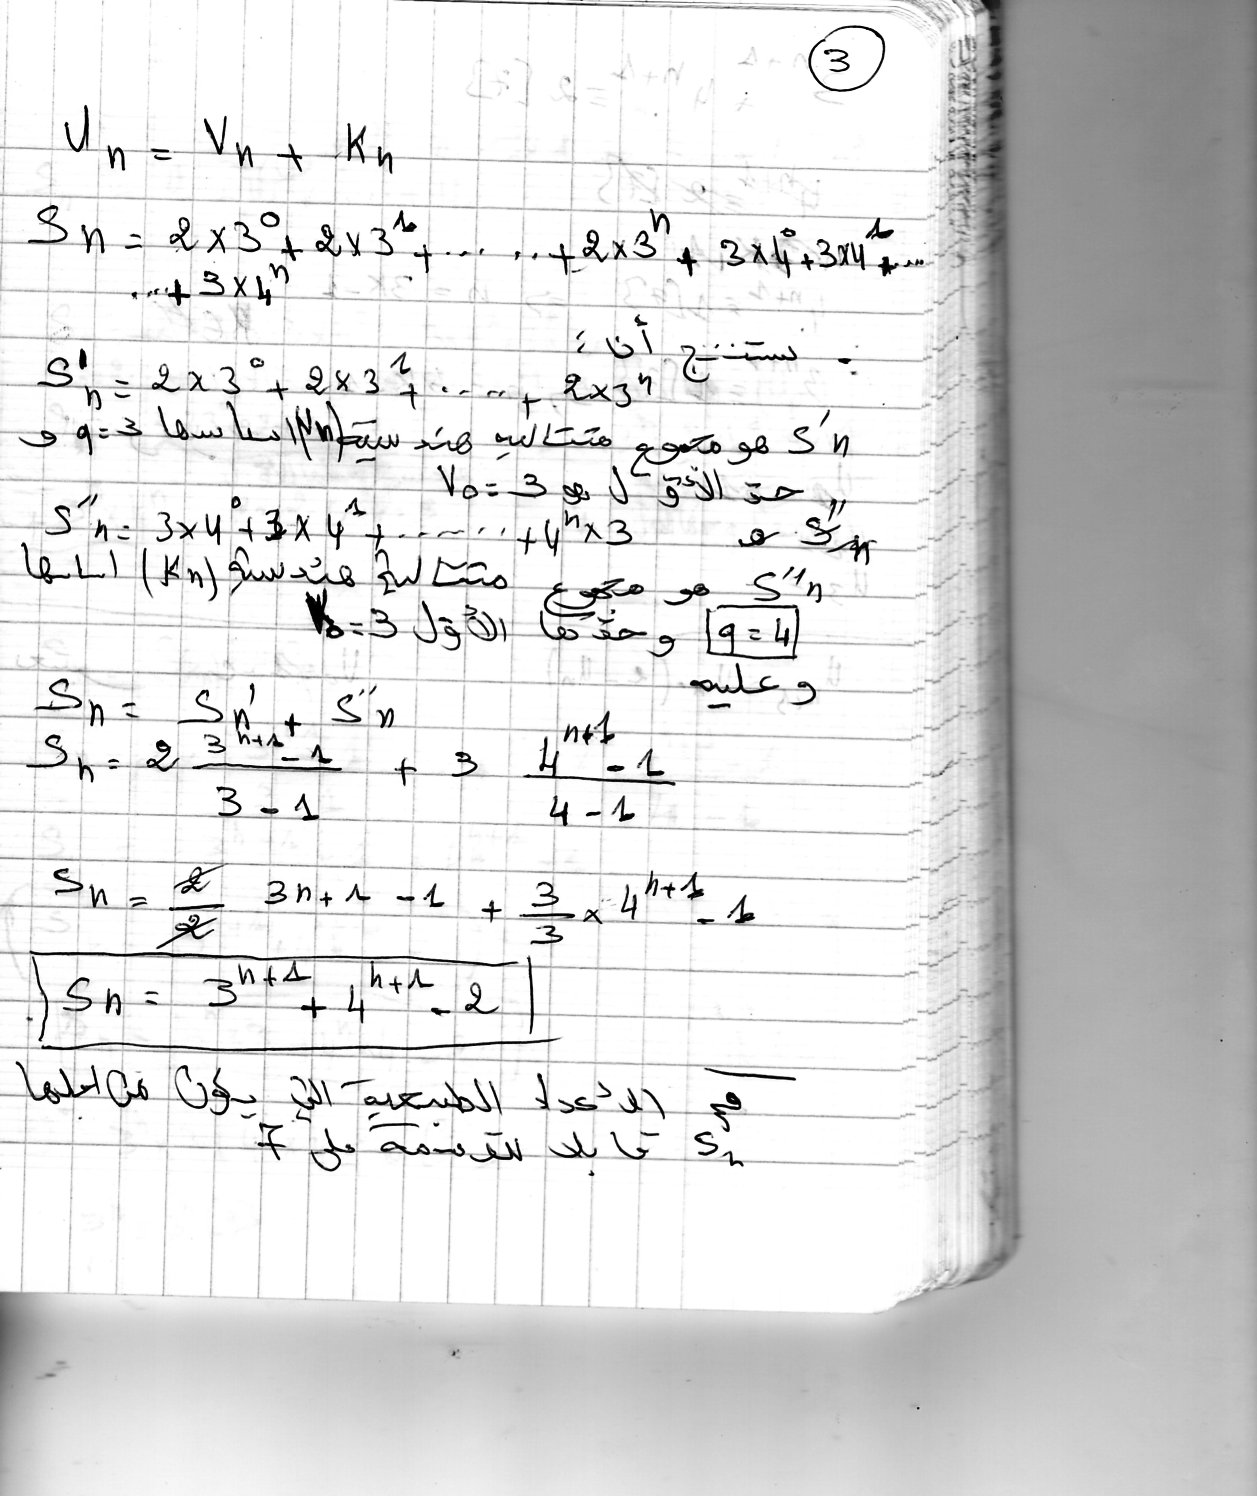 3
Un = Vn + Kn
Sn = 2×3⁰ + 2×3¹ + ...... + 2×3ⁿ + 3×4⁰ + 3×4¹ + ...
...+ 3×4ⁿ
. نستنتج أن :
S'n = 2×3⁰ + 2×3¹ + ...... + 2×3ⁿ
S'n هو مجموع متتالية هندسية (Vn) اساسها q=3 و
حدّ الأوّل هو V₀=3
و S''n S''n = 3×4⁰ + 3×4¹ + ........ + 4ⁿ×3
S''n هو مجموع متتالية هندسية (Kn) اساسها
q=4 وحدّها الأوّل V₀=3
وعليه
Sn = S'n + S''n
Sn = 2 (3ⁿ⁺¹ - 1)/(3 - 1) + 3 (4ⁿ⁺¹ - 1)/(4 - 1)
Sn = 2/2 3n+1 - 1 + 3/3 × 4ⁿ⁺¹ - 1
Sn = 3ⁿ⁺¹ + 4ⁿ⁺¹ - 2
الأعداد الطبيعية التي يكون من اجلها
Sn قابلا للقسمة على 7